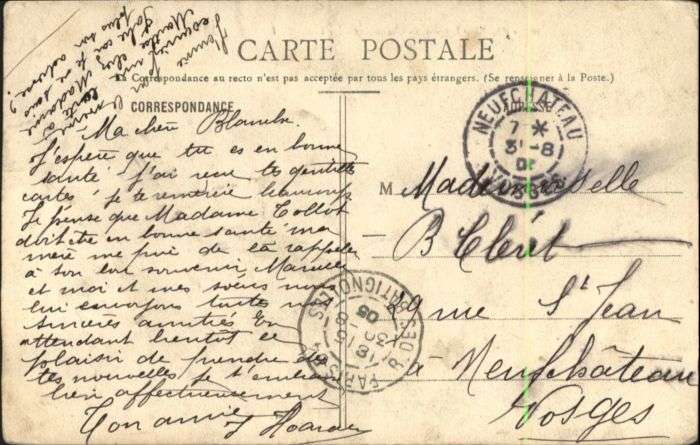 CARTE POSTALE
La Correspondance au recto n'est pas acceptée par tous les pays étrangers. (Se renseigner à la Poste.)
CORRESPONDANCE
Ma chère Blanche
J'espère que tu es en bonne
santé j'ai reçu tes gentilles
cartes je te remercie beaucoup
Je pense que Madame Collot
doit être en bonne santé ma
mère me prie de la rappeler
à son bon souvenir
et moi et mes sœurs nous
lui envoyons toutes nos
sincères amitiés En
attendant bientôt le
plaisir de prendre de
tes nouvelles je t'embrasse
bien affectueusement
Ton amie J
NEUFCHATEAU
7 *
31-8
VOSGES
M Mademoiselle
B Cléret
29 rue St Jean
à Neufchâteau
Vosges
PARIS
R. DES BATIGNOLLES
30
8